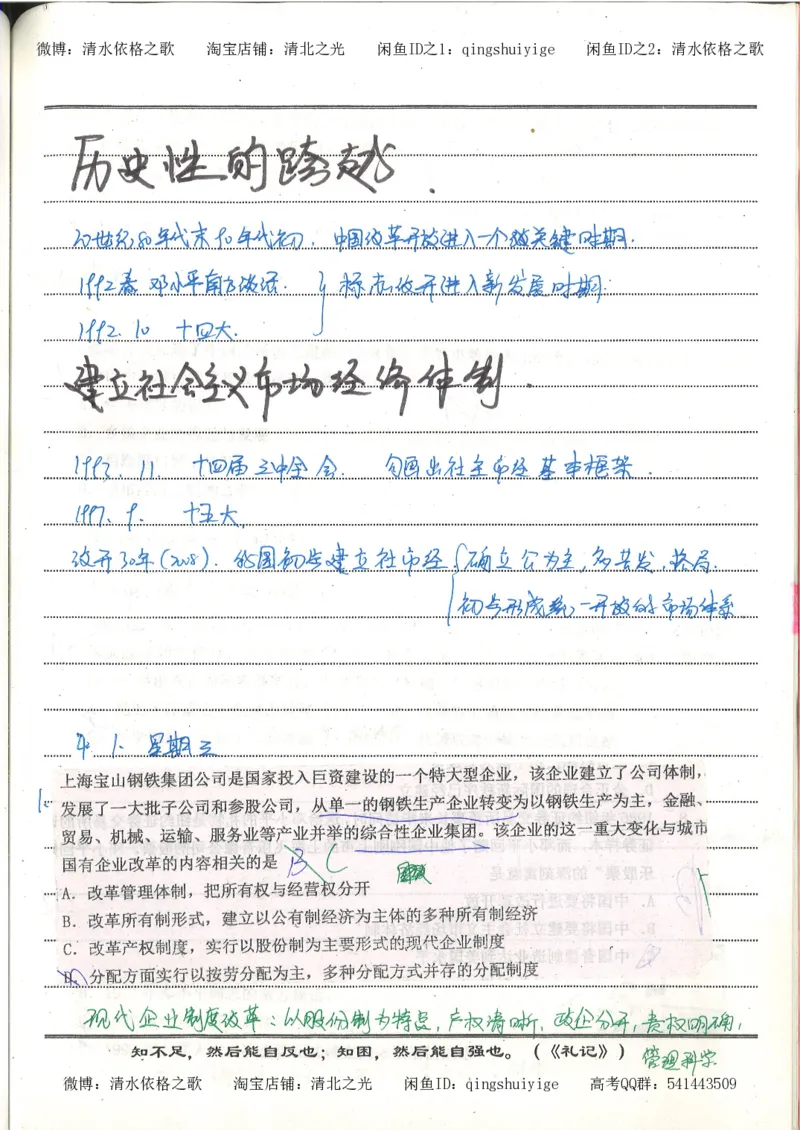 微博：清水依格之歌　　淘宝店铺：清北之光　　闲鱼ID之1：qingshuiyige　　闲鱼ID之2：清水依格之歌
历史性的跨越.
20世纪80年代末90年代初．中国改革开放进入一个关键时期．
1992春 邓小平南方谈话． } 标志改开进入新发展时期．
1992.10 十四大．
建立社会主义市场经济体制．
1993．11．十四届三中全会．　勾画出社主市经基本框架．
1997．9．十五大．
改开30年(2008)．我国初步建立社市经 { 确立公为主,多共发,格局．
初步形成统一开放的市场体系
4．1．星期三
上海宝山钢铁集团公司是国家投入巨资建设的一个特大型企业，该企业建立了公司体制，
1. 发展了一大批子公司和参股公司，从单一的钢铁生产企业转变为以钢铁生产为主，金融、
贸易、机械、运输、服务业等产业并举的综合性企业集团。该企业的这一重大变化与城市
国有企业改革的内容相关的是 B C
A．改革管理体制，把所有权与经营权分开
B．改革所有制形式，建立以公有制经济为主体的多种所有制经济
C．改革产权制度，实行以股份制为主要形式的现代企业制度
D．分配方面实行以按劳分配为主，多种分配方式并存的分配制度
现代企业制度改革：以股份制为特点，产权清晰，政企分开，责权明确，
管理科学
知不足，然后能自反也；知困，然后能自强也。（《礼记》）
微博：清水依格之歌　　淘宝店铺：清北之光　　闲鱼ID：qingshuiyige　　高考QQ群：541443509